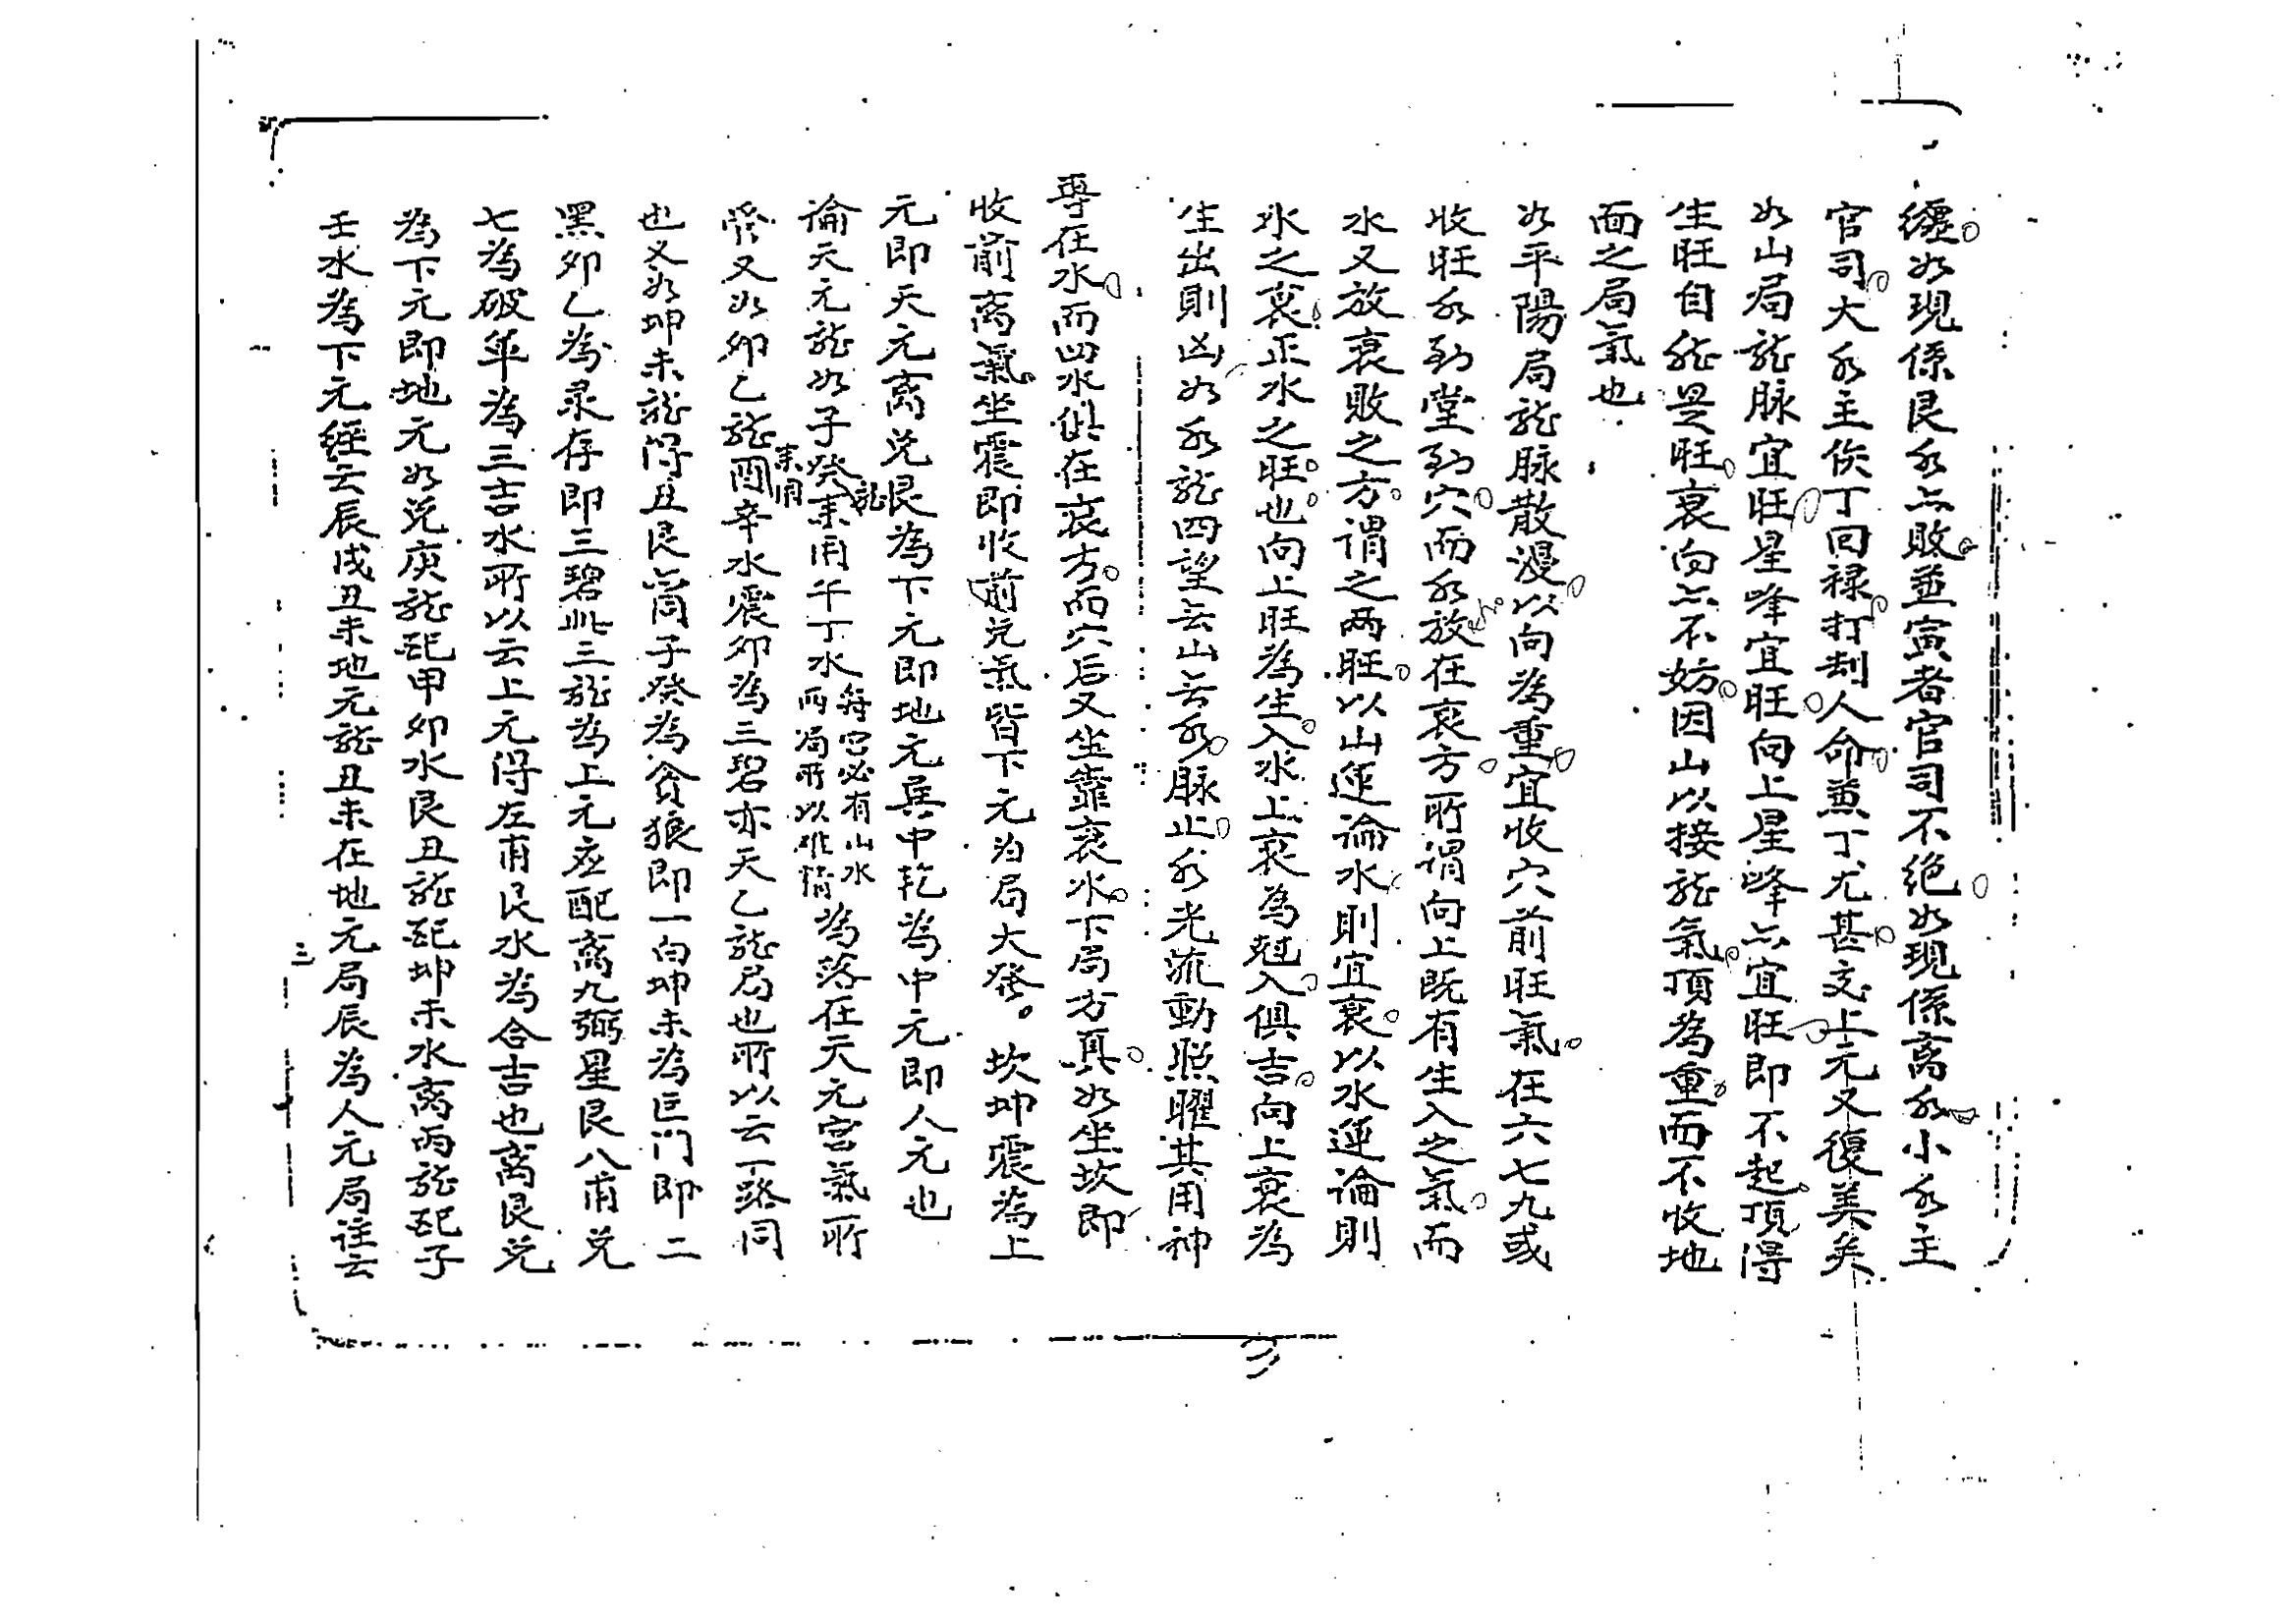 纏如現係艮水亦敗並寅者官司不絶如現係离水小水主
官司大水主伤丁回禄打刼人命兼丁尤甚交上元又復美矣
如山局龍脉宜旺星峰宜旺向上星峰亦宜旺即不起頂得
生旺自能是旺衰向亦不妨因山以接龍氣頂為重而不收地
面之局氣也
如平陽局龍脉散漫以向為重宜收穴前旺氣在六七九或
收旺水到堂到穴而水放在衰方所謂向上既有生入之氣而
水又放衰敗之方謂之两旺以山运論水則宜衰以水运論則
水之衰正水之旺也向上旺為生入水上衰為尅入俱吉向上衰為
生出則凶如水龍四望无山无水脉止水光流動照曜其用神
專在水而四水俱在衰方而穴后又坐靠衰水下局方真如坐坎即
收前离氣坐震即收前兑氣皆下元为局大發。坎坤震為上
元即天元离兑艮為下元即地元巽中乾為中元即人元也
論天元龍如子癸龍耒用午丁水每宫必有山水两局所以雌雄為落在天元宫氣所
受又如卯乙龍耒用酉辛水震卯為三碧亦天乙龍局也所以云一路同
也又如坤未龍得丑艮向子癸為贪狼即一白坤未為巨门即二
黑卯乙為录存即三碧此三龍為上元应配离九弼星艮八甫兑
七為破军為三吉水所以云上元得左甫艮水為合吉也离艮兑
為下元即地元如兑庚龍配甲卯水艮丑龍配坤未水离丙龍配子
壬水為下元經云辰戌丑未地元龍丑未在地元局辰為人元局註云
三